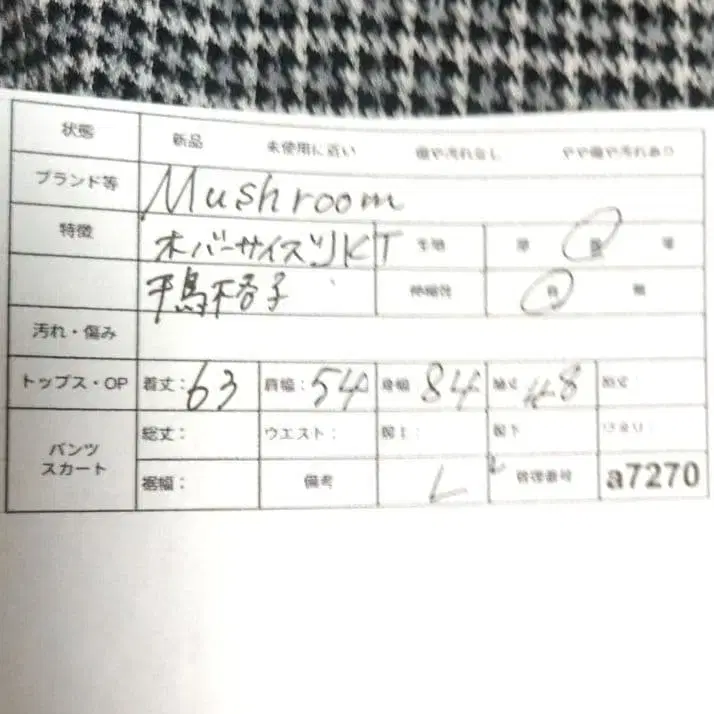 状態 新品 未使用に近い 傷や汚れなし やや傷や汚れあり
ブランド等 Mushroom
特徴 オバーサイズJKT 生地 厚
千鳥格子 伸縮性 有 無
汚れ・傷み
トップス・OP 着丈：63 肩幅：54 身幅 84 袖丈 48
パンツ スカート 総丈： ウエスト： 股上： 股下
裾幅： 備考 L 管理番号 a7270